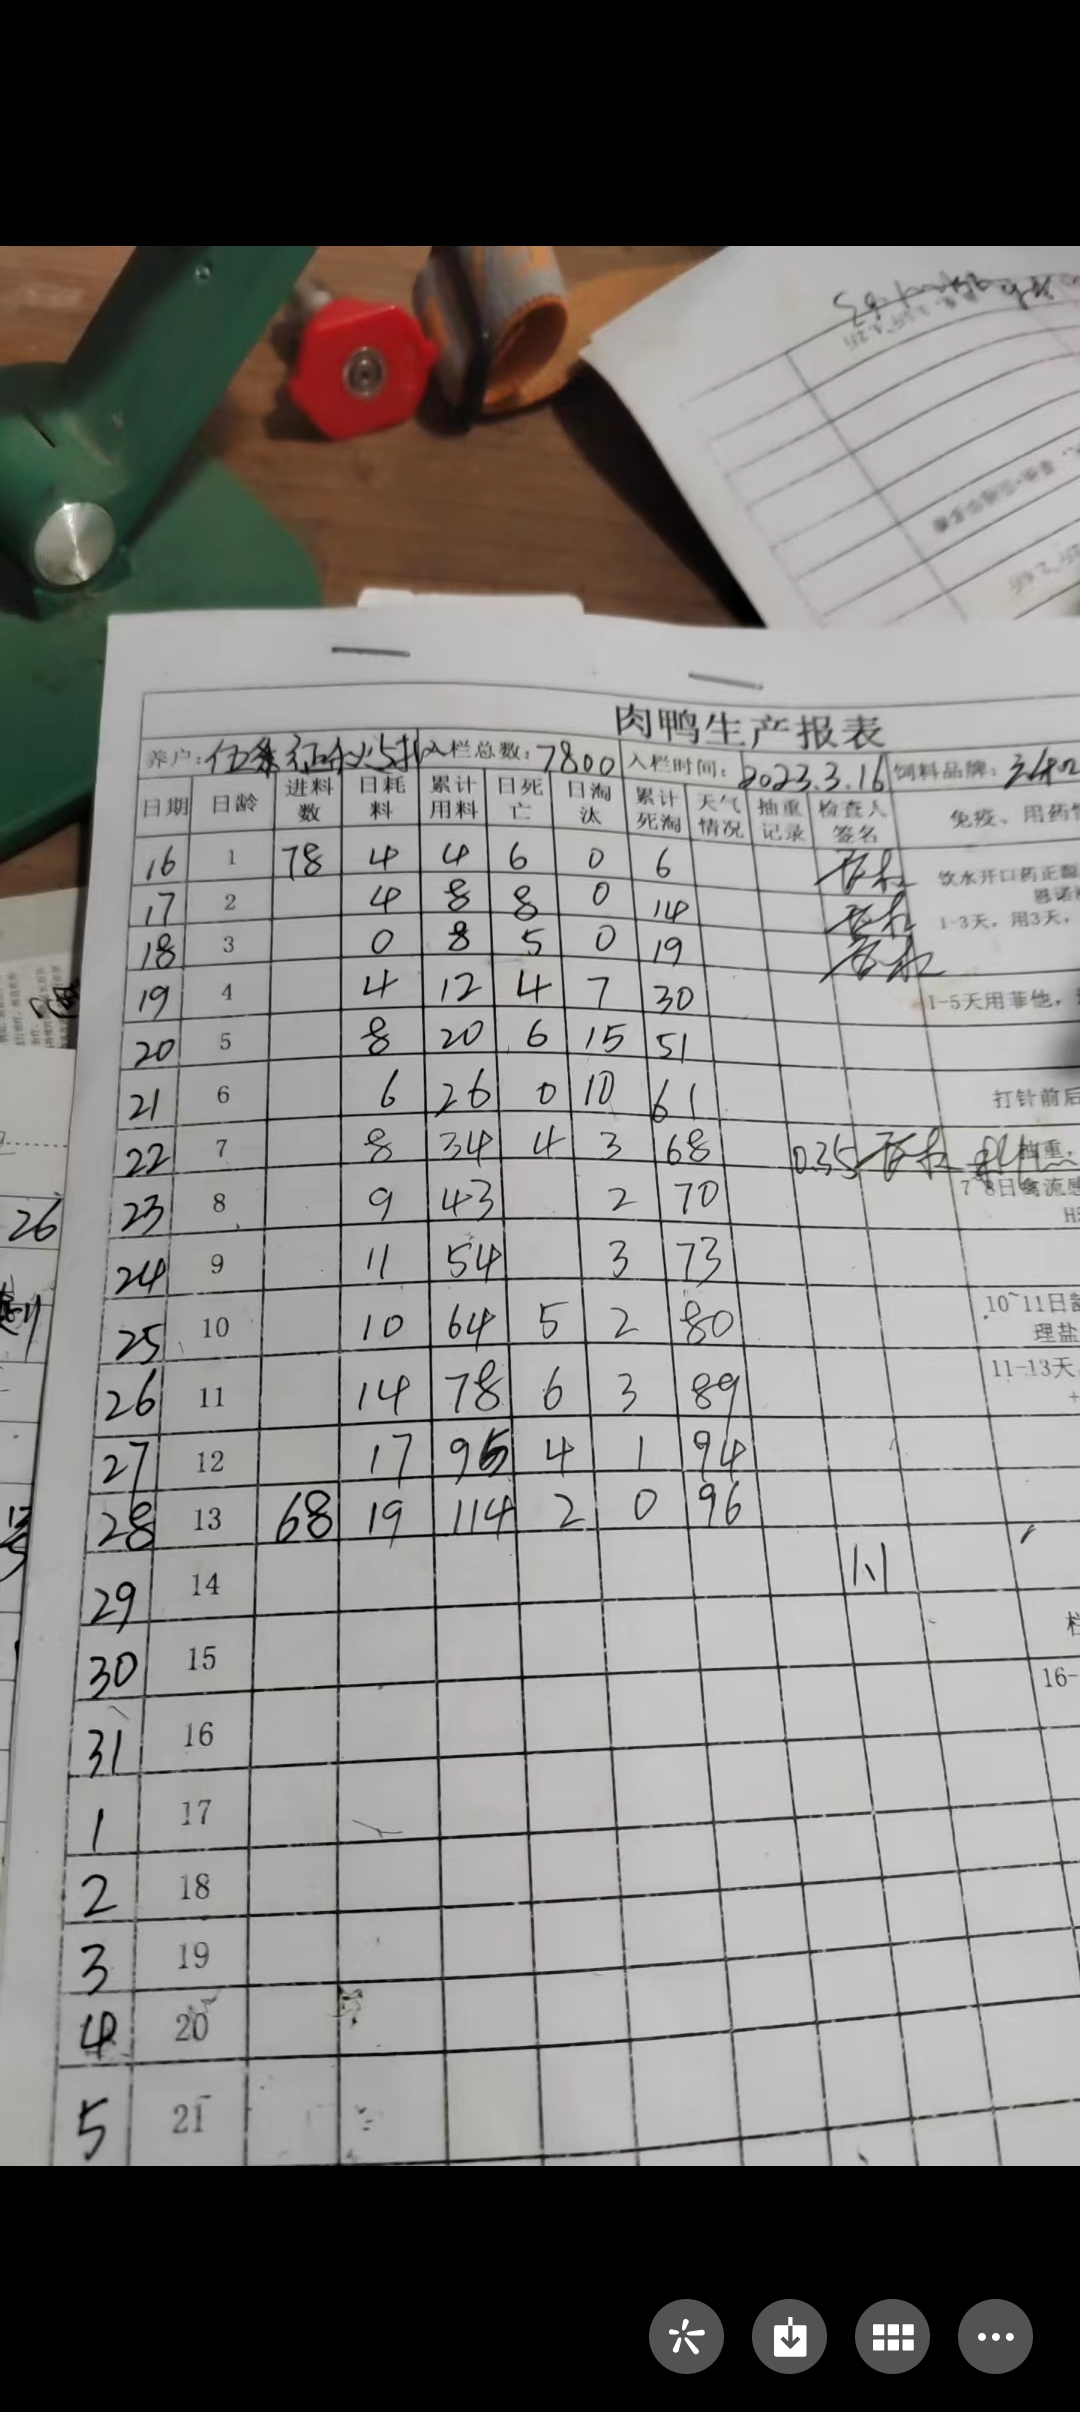 肉鸭生产报表
养户: 入栏总数:7800 入栏时间:2023.3.16 饲料品牌:
日期 日龄 进料数 日耗料 累计用料 日死亡 日淘汰 累计死淘 天气情况 抽重记录 检查人签名 免疫、用药
16 1 78 4 4 6 0 6 饮水开口药
17 2 4 8 8 0 14 1-3天，用3天，
18 3 0 8 5 0 19
19 4 4 12 4 7 30 1-5天用菲他，
20 5 8 20 6 15 51
21 6 6 26 0 10 61 打针前后
22 7 8 34 4 3 68 0.35 抽重，
23 8 9 43 2 70 7 8日禽流感
24 9 11 54 3 73
25 10 10 64 5 2 80 10~11日龄
理盐
26 11 14 78 6 3 89 11-13天
27 12 17 95 4 1 94
28 13 68 19 114 2 0 96
29 14
30 15
31 16 16-
1 17
2 18
3 19
4 20
5 21
26